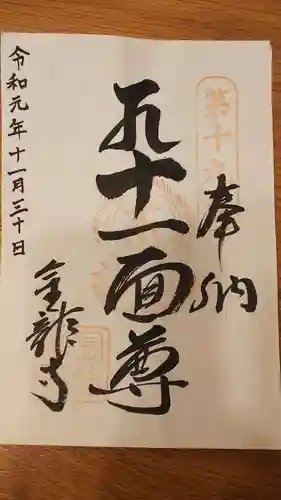 奉納
第十
九十一面尊
金龍寺
令和元年十一月三十日